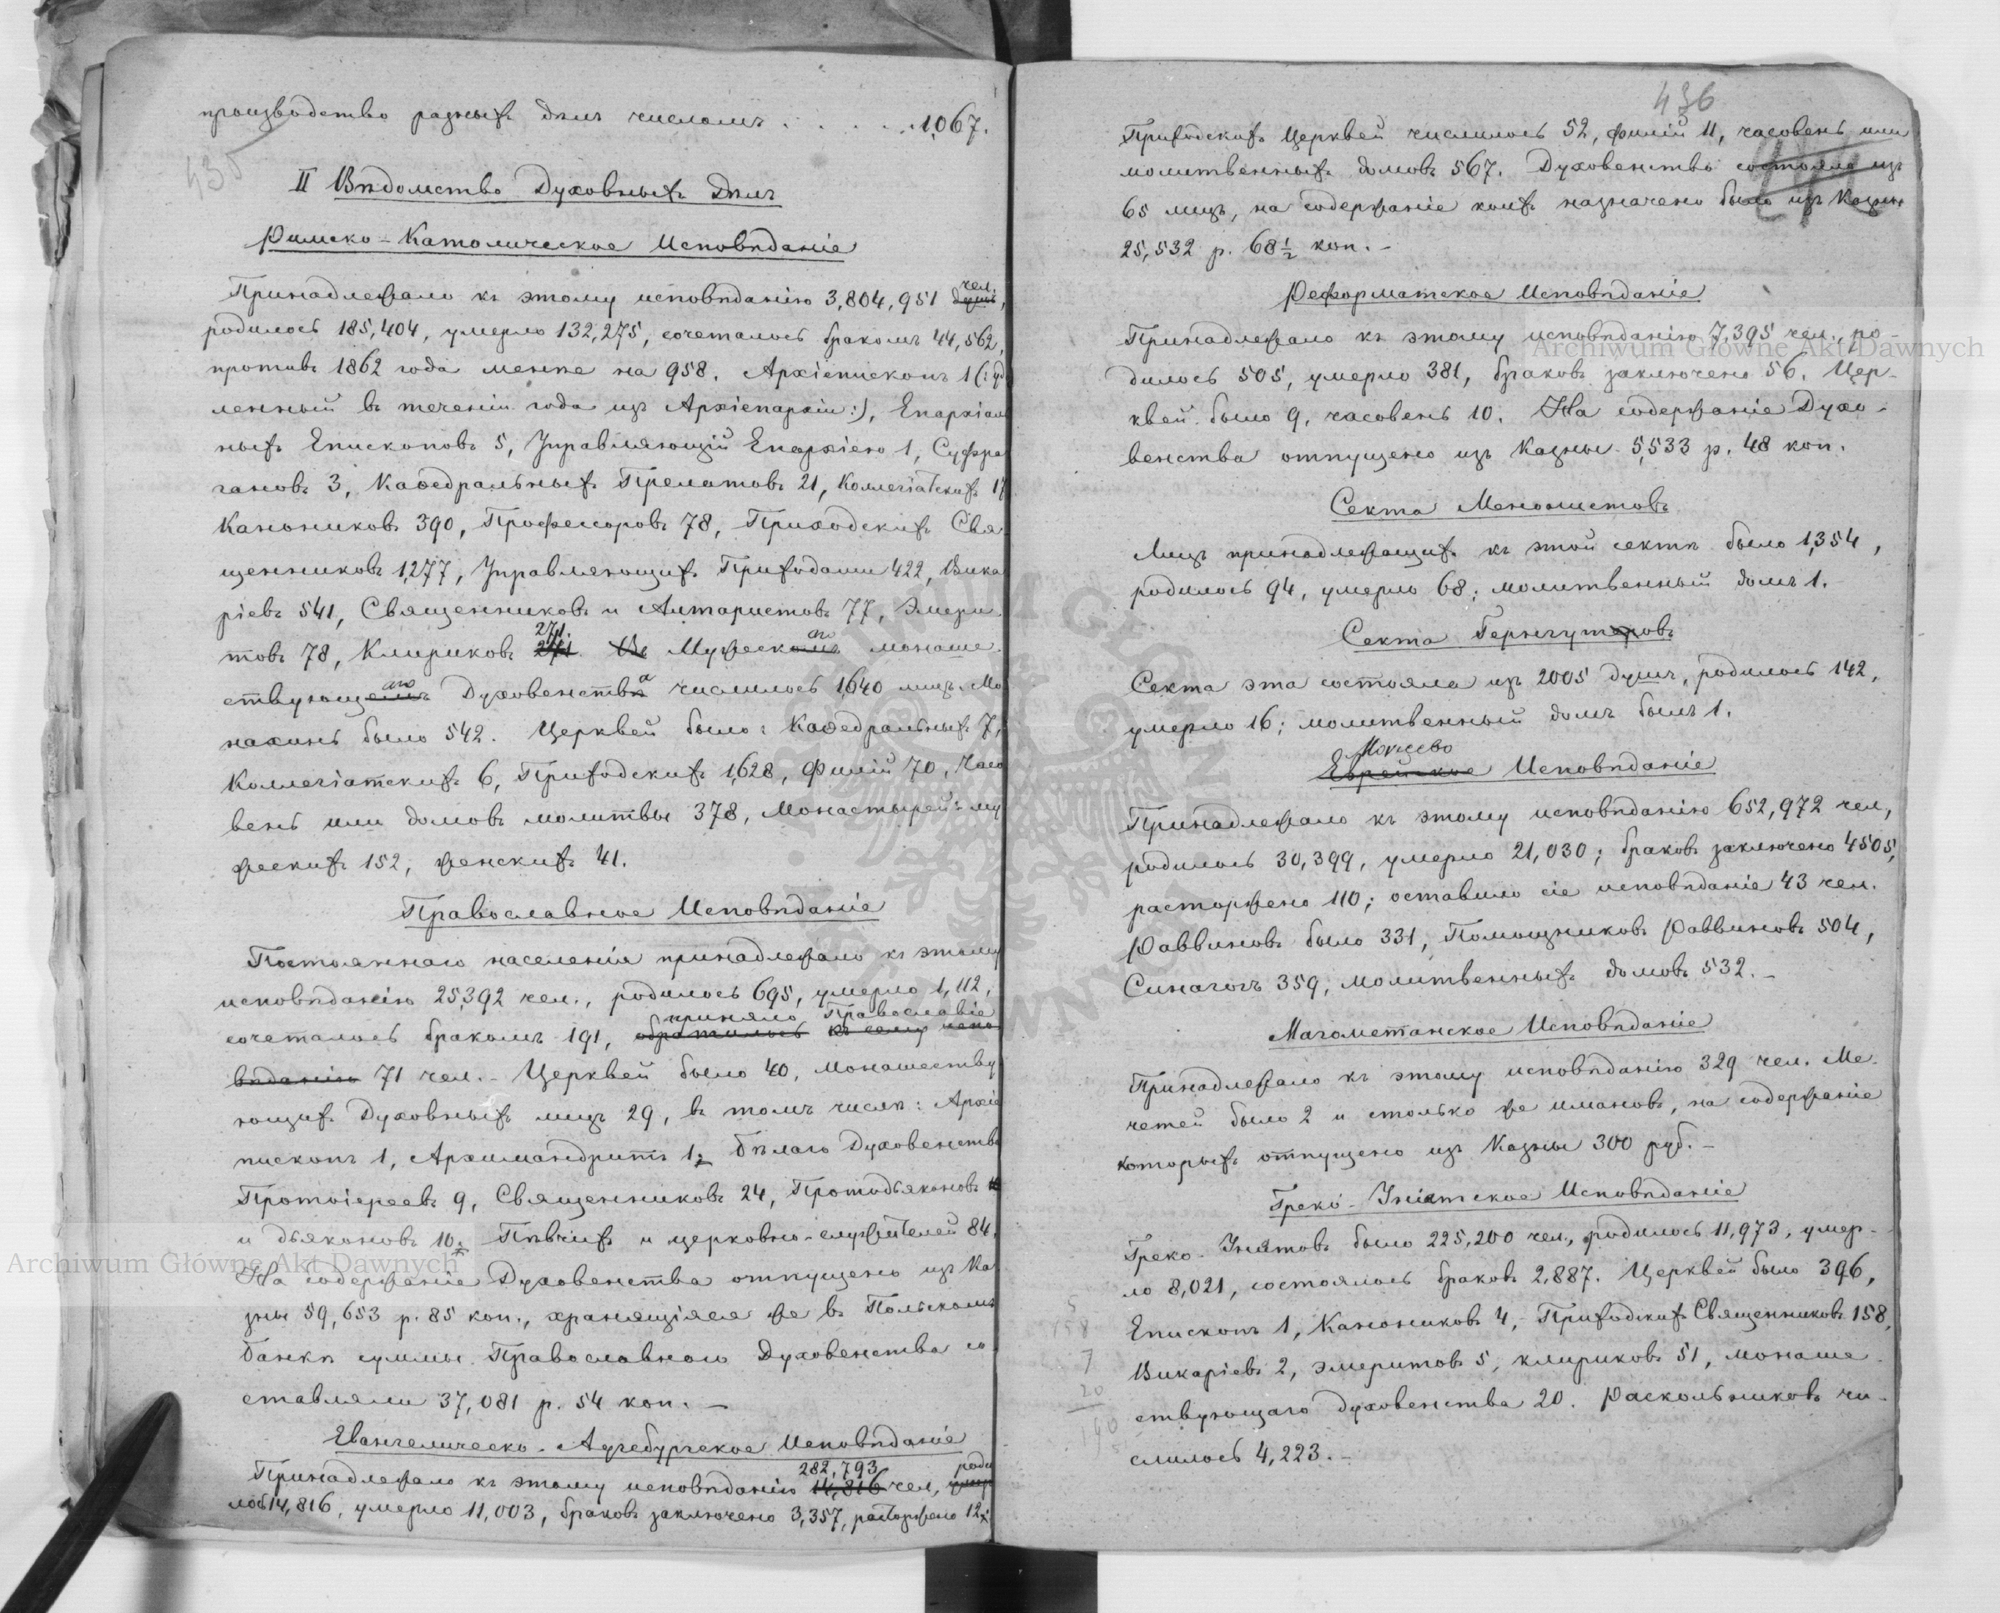 производство разныхъ дѣлъ числомъ . . . . . 1,067.
435
II Вѣдомство Духовныхъ Дѣлъ
Римско-Католическое Исповѣданіе
Принадлежало къ этому исповѣданію 3,804,951 чел. душъ,
родилось 185,404, умерло 132,275, сочеталось бракомъ 44,562,
противъ 1862 года менѣе на 958. Архіепископъ 1 (: уда
ленный въ теченіи года изъ Архіепархіи :), Епархіаль
ныхъ Епископовъ 5, Управляющій Епархіею 1, Суфра
гановъ 3, Каѳедральныхъ Прелатовъ 21, Коллегіатскихъ 17
Канониковъ 390, Профессоровъ 78, Приходскихъ Свя
щенниковъ 1,277, Управляющихъ Приходами 422, Вика
ріевъ 541, Священниковъ и Алтаристовъ 77, Эмери
товъ 78, Клириковъ 271. Мужескаго монаше
ствующаго Духовенства числилось 1640 лицъ. Мо
нахинь было 542. Церквей было: Каѳедральныхъ 7,
Коллегіатскихъ 6, Приходскихъ 1,628, Филій 70, Часо
вень или домовъ молитвы 378, Монастырей: му
жескихъ 152, женскихъ 41.
Православное Исповѣданіе
Постояннаго населенія принадлежало къ этому
исповѣданію 25,392 чел., родилось 695, умерло 1,112,
приняло Православіе
сочеталось бракомъ 191, обратилось къ сему испо
вѣданію 71 чел. - Церквей было 40, монашеству
ющихъ Духовныхъ лицъ 29, въ томъ числѣ: Архіе
пископъ 1, Архимандритъ 1; Бѣлаго Духовенства
Протоіереевъ 9, Священниковъ 24, Протодьяконовъ
и дьяконовъ 10; Пѣвчихъ и церковно-служителей 84.
На содержаніе Духовенства отпущено изъ Ка
зны 59,653 р. 85 коп., хранящіяся же въ Польскомъ
Банкѣ суммы Православнаго Духовенства со
ставляли 37,081 р. 54 коп. —
Евангелическо-Аугсбургское Исповѣданіе
282,793 роди
Принадлежало къ этому исповѣданію 14,816 чел., умер
лось 14,816, умерло 11,003, браковъ заключено 3,357, расторжено 12;
436
Приходскихъ Церквей числилось 52, филій 11, часовень или
молитвенныхъ домовъ 567. Духовенство состояло изъ
65 лицъ, на содержаніе коихъ назначено было изъ Казны
25,532 р. 68½ коп. -
Реформатское Исповѣданіе
Принадлежало къ этому исповѣданію 7,395 чел., ро-
дилось 505, умерло 381, браковъ заключено 56. Цер-
квей было 9, часовень 10. На содержаніе Духо-
венства отпущено изъ Казны 5,533 р. 48 коп.
Секта Менонистовъ
Лицъ принадлежащихъ къ этой сектѣ было 1,354,
родилось 94, умерло 68; молитвенный домъ 1.
Секта Гернгутеровъ
Секта эта состояла изъ 2005 душъ, родилось 142,
умерло 16; молитвенный домъ былъ 1.
Моисеево
Еврейское Исповѣданіе
Принадлежало къ этому исповѣданію 652,972 чел,
родилось 30,399, умерло 21,030; браковъ заключено 4505,
расторжено 110; оставило сіе исповѣданіе 43 чел.
Раввиновъ было 331, Помощниковъ Раввиновъ 504,
Синагогъ 359, молитвенныхъ домовъ 532. -
Магометанское Исповѣданіе
Принадлежало къ этому исповѣданію 329 чел. Ме-
четей было 2 и столько же имановъ, на содержаніе
которыхъ отпущено изъ Казны 300 руб. -
Греко-Уніатское Исповѣданіе
Греко-Уніятовъ было 225,200 чел., родилось 11,973, умер-
ло 8,021, состоялось браковъ 2,887. Церквей было 396,
Епископъ 1, Канониковъ 4, Приходскихъ Священниковъ 158,
Викаріевъ 2, эмеритовъ 5, клириковъ 51, монаше-
ствующаго духовенства 20. Раскольниковъ чи-
слилось 4,223. -
5
158
7
20
190
Archiwum Główne Akt Dawnych
Archiwum Główne Akt Dawnych
ARCHIWUM GŁÓWNE AKT DAWNYCH